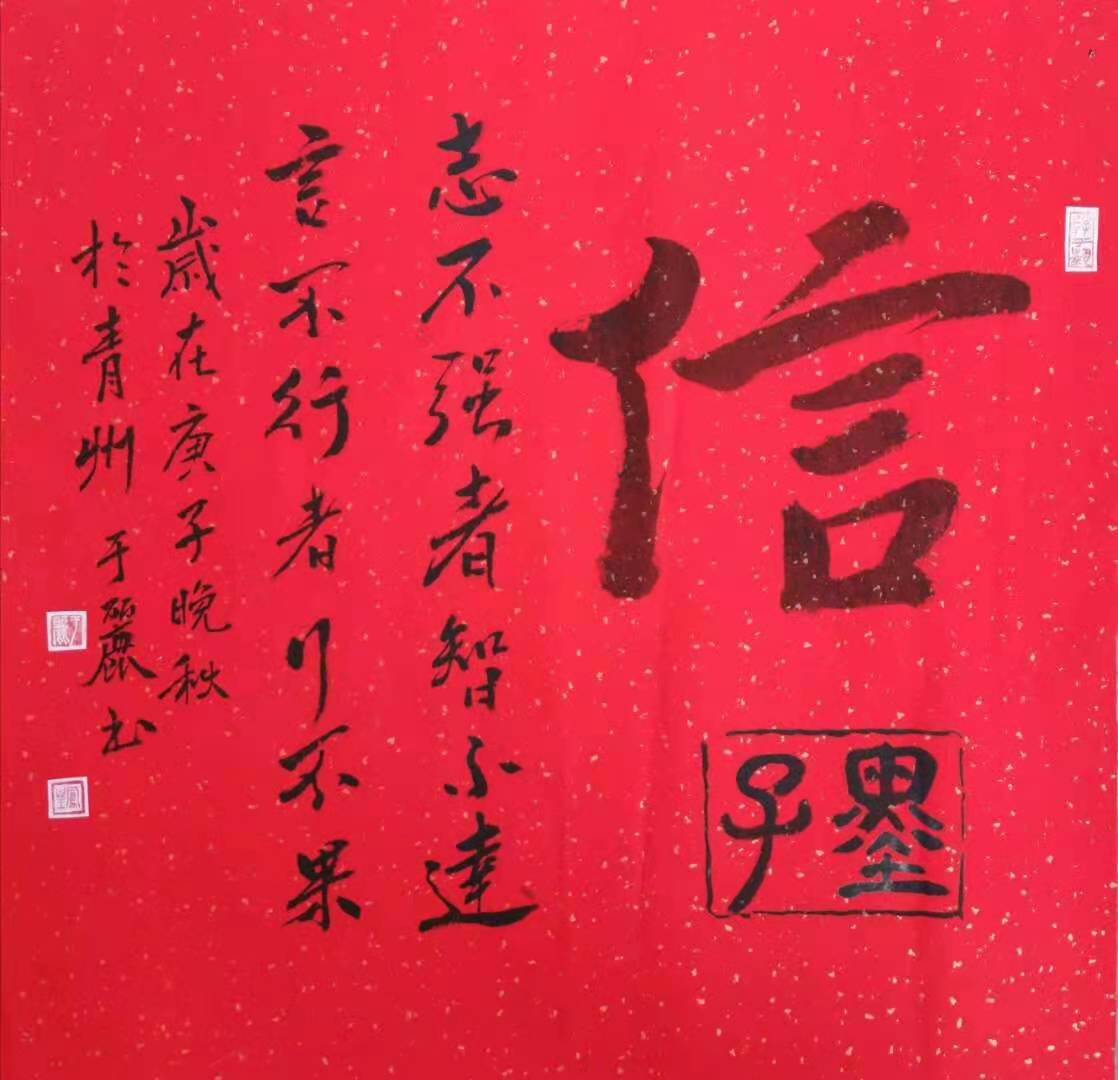 信
墨子
志不强者智不達
言不行者行不果
歲在庚子晚秋
於青州于麗书